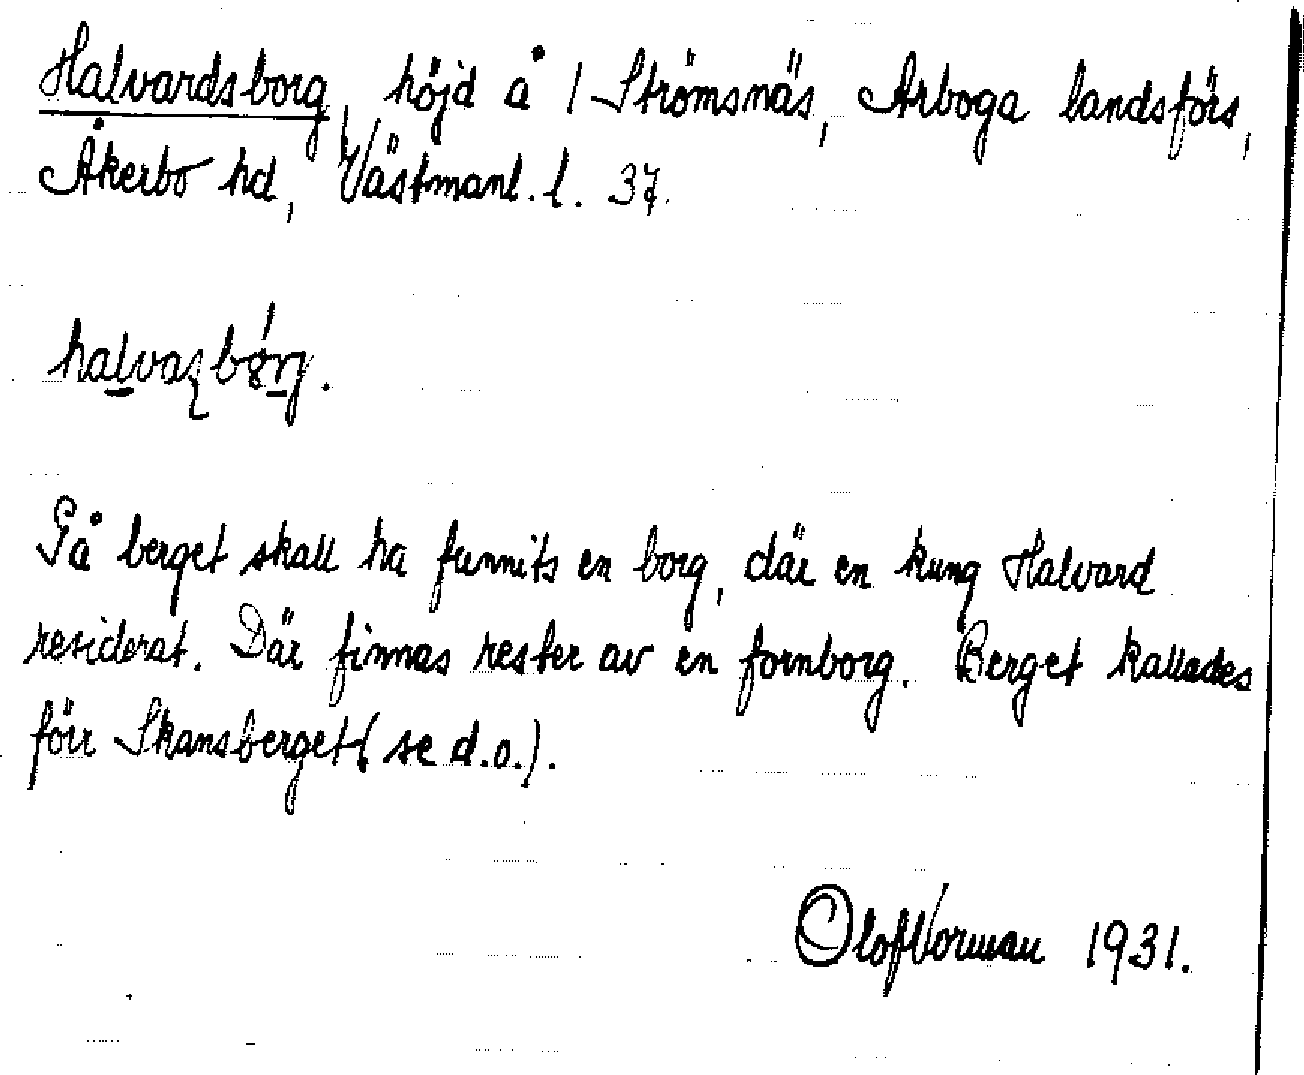 Halvardsborg, höjd å 1 Strömsnäs, Arboga landsförs,
Åkerbo hd, Västmanl. l. 37.
På berget skall ha funnits en borg, där en kung Halvard
residerat. Där finnas rester av en fornborg. Berget kallades
förr Skansberget (se d.o.).
Olof Norman 1931.